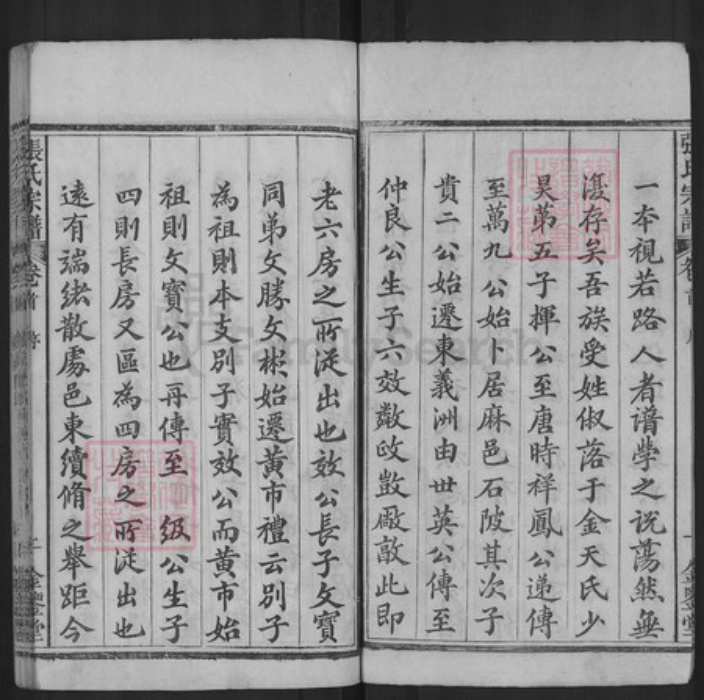 一本視若路人者譜學之説蕩然無
復存矣吾族受姓俶落于金天氏少
昊苐五子揮公至唐時祥鳳公递傳
至萬九公始卜居麻邑石陂其次子
貴二公始遷東義洲由世英公傳至
仲良公生子六效敿政敳敺敵此即
老六房之所従出也效公長子文寳
同弟文勝文彬始遷黄市禮云别子
為祖則本支别子實效公而黄市始
祖則文寳公也再傳至 級公生子
四則長房又區為四房之所従出也
逺有端緒散處邑東續脩之舉距今
張氏宗譜 卷首 序
一 金鑒堂
張氏宗譜 卷首 序
二 金鑒堂
FamilySearch